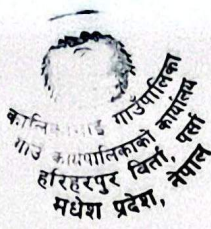 गाउँपालिका
गाउँ कार्यपालिकाको कार्यालय
हरिहरपुर विर्ता, पर्सा
मधेश प्रदेश, नेपाल